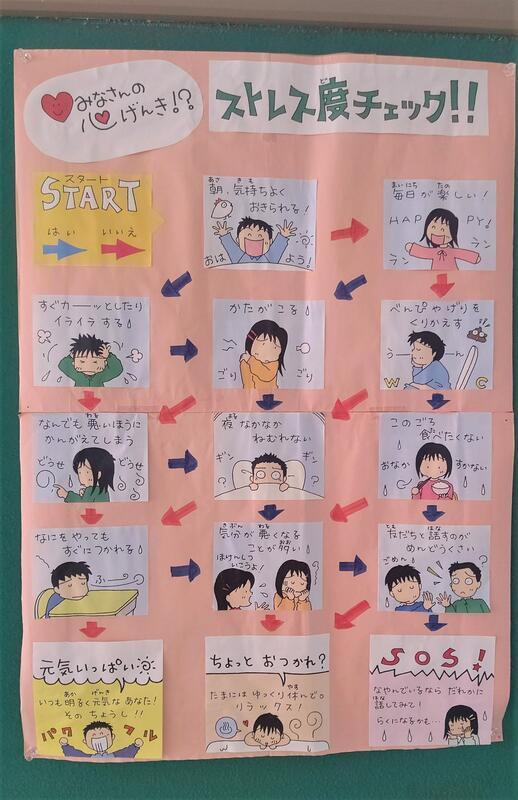 みなさんの
心げんき!?
ストレス度チェック!!
ど
スタート
START
はい いいえ
あさ きも
朝、気持ちよく
おきられる!
おはよう!
まいにち たの
毎日が楽しい!
HAPPY!
ラン
ラン
すぐカーッとしたり
イライラする
かたがこる
ゴリ ゴリ
べんぴやげりを
くりかえす
うーーん
W C
わる
なんでも悪いほうに
かんがえてしまう
どうせ どうせ
よる
夜なかなか
ねむれない
ギン ギン
? ?
このごろ
た
食べたくない
おなか すかない
なにをやっても
すぐにつかれる
ふー
きぶん わる
気分が悪くなる
おお
ことが多い
ほけんしつ
いこうよ!
とも はな
友だちと話すのが
めんどうくさい
ごめん ?
元気いっぱい
あか げんき
いつも明るく元気なあなた!
そのちょうし!!
パワフル
ちょっとおつかれ?
やす
たまにはゆっくり休んで。
リラックス!
SOS!
なやんでいるなら だれかに
はな
話してみて!
らくになるかも…